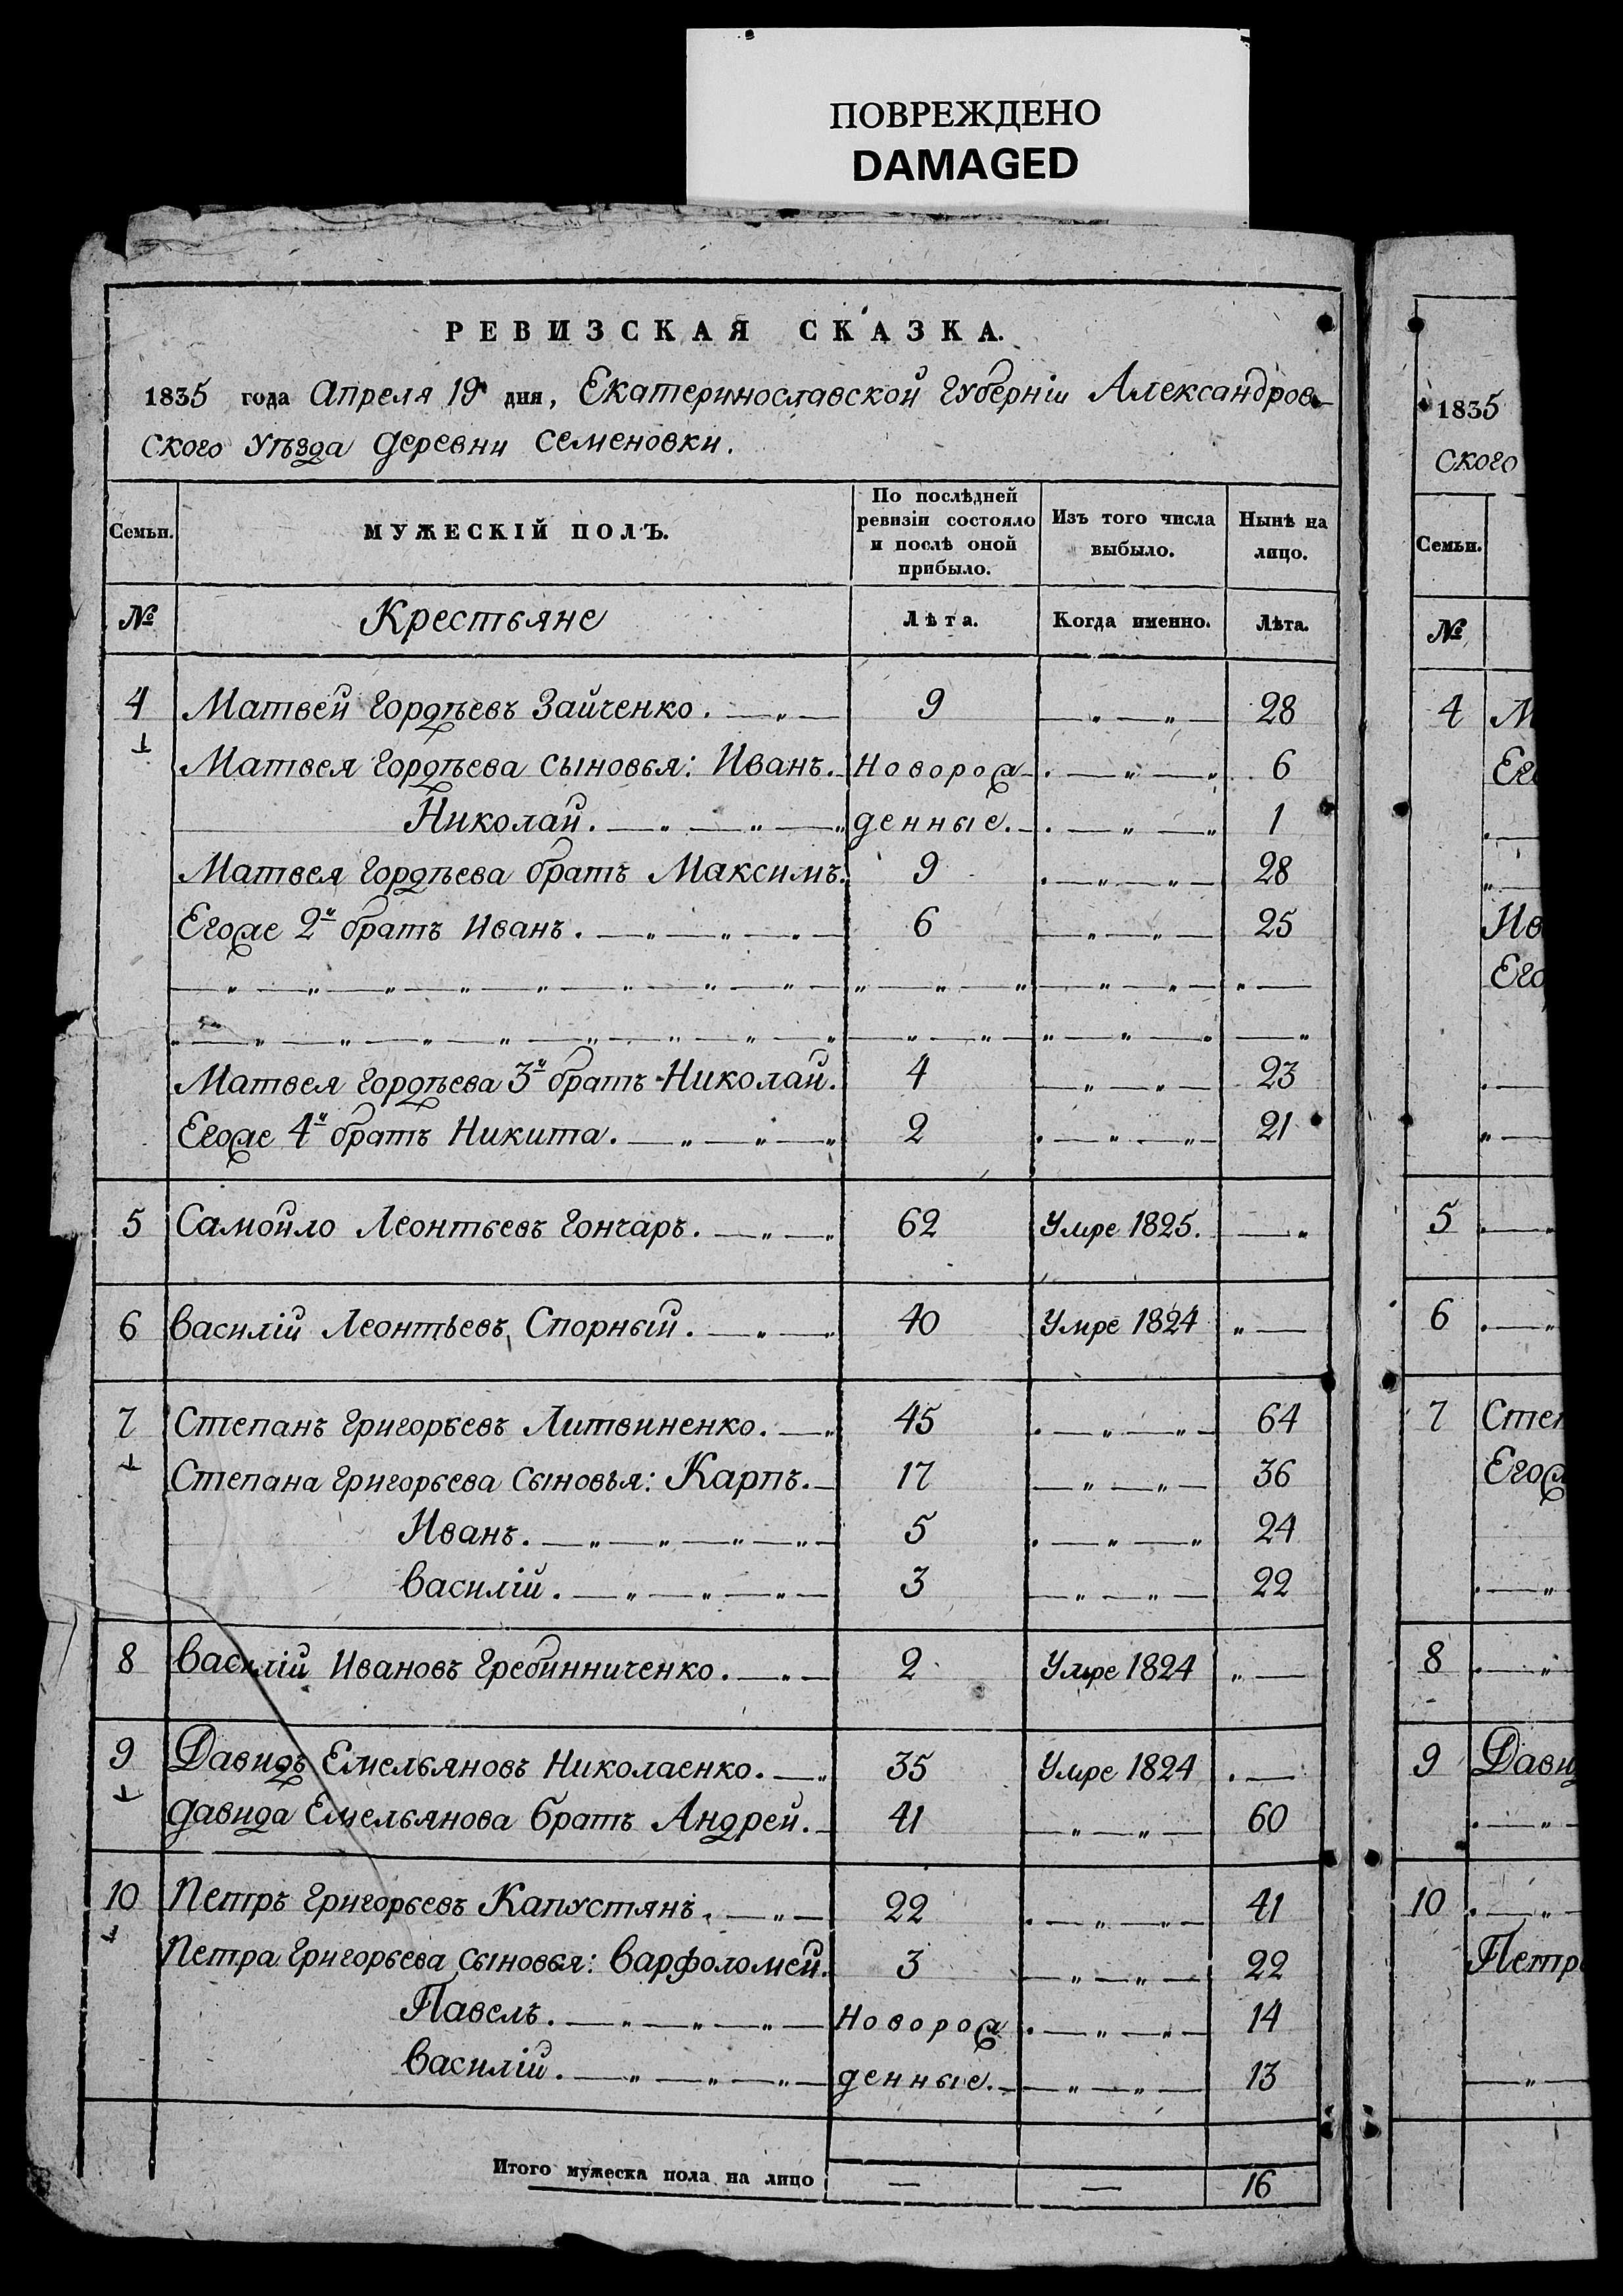 ПОВРЕЖДЕНО
DAMAGED
РЕВИЗСКАЯ СКАЗКА.
1835 года Апреля 19 дня, Екатеринославской Губерніи Александров-
ского Уѣзда деревни Семеновки.
Семьи. МУЖЕСКІЙ ПОЛЪ. По послѣдней ревизіи состояло и послѣ оной прибыло. Изъ того числа выбыло. Нынѣ на лицо.
№ Крестьяне Лѣта. Когда именно. Лѣта.
4 Матвей Гордѣевъ Зайченко. — „ — 9 — „ — „ — 28
Матвея Гордѣева сыновья: Иванъ. Новорож- 6
Николай. — „ — „ — „ денные. — 1
Матвея Гордѣева братъ Максимъ. 9 — „ — „ — 28
Егоже 2й братъ Иванъ. — „ — „ — „ — 6 — „ — „ — 25
— „ — „ — „ — „ — „ — „ — „ — „ —
„ — „ — „ — „ — „ — „ — „ — „ — „
Матвея Гордѣева 3й братъ Николай. 4 — „ — „ — 23
Егоже 4й братъ Никита. — „ — „ — „ 2 — „ — „ — 21
5 Самойло Леонтьевъ Гончаръ. — „ — „ 62 Умре 1825. — „
6 Василій Леонтьевъ Спорный. — „ — „ 40 Умре 1824 „ —
7 Степанъ Григорьевъ Литвиненко. — „ 45 — „ — „ — 64
Степана Григорьева Сыновья: Карпъ. — 17 — „ — „ — 36
Иванъ. — „ — „ — „ — „ — 5 — „ — „ 24
Василій. — „ — „ — „ — 3 — „ — „ — 22
8 Василій Ивановъ Гребинниченко. — „ — 2 Умре 1824 „ —
9 Давидъ Емельяновъ Николаенко. — „ 35 Умре 1824 . —
Давида Емельянова братъ Андрей. — 41 — „ — „ — 60
10 Петръ Григорьевъ Капустянъ. — „ — 22 — „ — „ — 41
Петра Григорьева сыновья: Варфоломей. 3 — „ — „ — 22
Павелъ. — „ — „ — „ — Новорож . — „ — „ — 14
Василій. — „ — „ — „ — денные. — „ — „ — 13
Итого мужеска пола на лицо — — 16
1835
ского
Семьи.
№
4 М
Его
Ив
Его
5
6
7 Степ
Егож
8
9 Давид
10
Петр